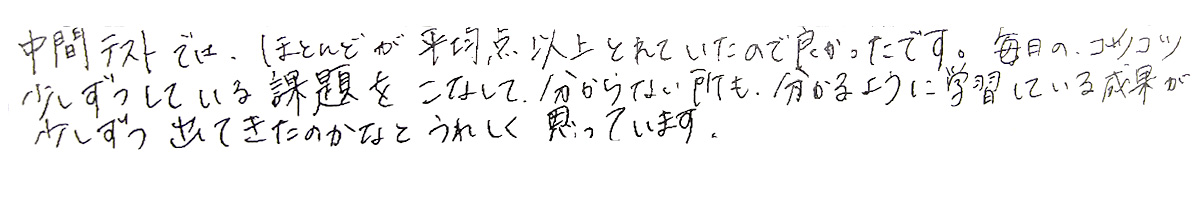 中間テストでは、ほとんどが平均点以上とれていたので良かったです。毎日の、コツコツ
少しずつしている課題をこなして、分からない所も、分かるように学習している成果が
少しずつ出てきたのかなとうれしく思っています。